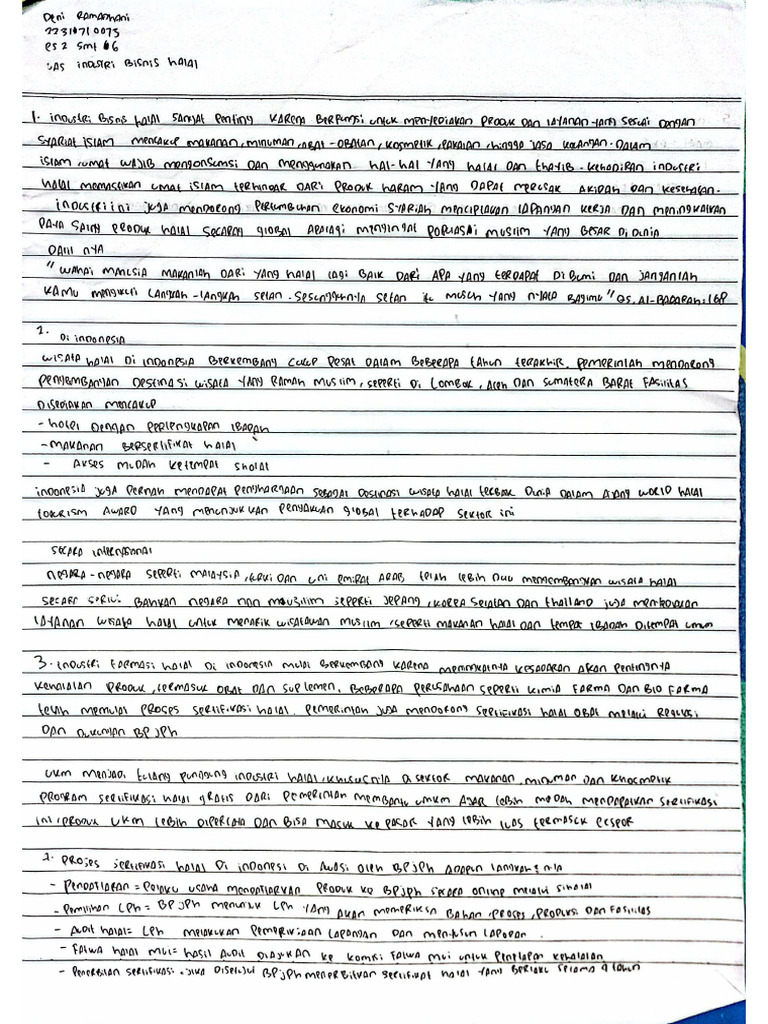 Deni Ramadhani
22310710075
ES 2 Smt 6
UAS industri Bisnis halal
1. industri Bisnis halal sangat penting karena berfungsi untuk menyediakan produk dan layanan yang sesuai dengan
syariat islam mencakup makanan, minuman, obat-obatan, kosmetik, pakaian, hingga jasa keuangan. Dalam
islam, umat wajib mengonsumsi dan menggunakan hal-hal yang halal dan thayib. Kehadiran industri
halal memastikan umat islam terhindar dari produk haram yang dapat merusak akidah dan kesehatan.
industri ini juga mendorong pertumbuhan ekonomi syariah menciptakan lapangan kerja dan meningkatkan
daya saing produk halal secara global apalagi mengingat populasi muslim yang besar di dunia
Dalil nya
"Wahai manusia makanlah dari yang halal lagi baik dari apa yang terdapat di bumi dan janganlah
kamu mengikuti langkah-langkah setan. Sesungguhnya setan itu musuh yang nyata bagimu" QS. Al-Baqarah: 168
2. Di indonesia
wisata halal di indonesia berkembang cukup pesat dalam beberapa tahun terakhir. pemerintah mendorong
pengembangan destinasi wisata yang ramah muslim, seperti di Lombok, Aceh dan Sumatera Barat Fasilitas
disediakan mencakup
- hotel dengan perlengkapan ibadah
- makanan bersertifikat halal
- Akses mudah ketempat sholat
indonesia juga pernah mendapat penghargaan sebagai destinasi wisata halal terbaik dunia dalam ajang world halal
tourism award yang menunjukkan pengakuan global terhadap sektor ini
Secara internasional
negara-negara seperti malaysia, turki dan uni emirat arab telah lebih dulu mengembangkan wisata halal
secara serius. Bahkan negara non muslim seperti jepang, korea selatan dan thailand juga menyediakan
layanan wisata halal untuk menarik wisatawan muslim, seperti makanan halal dan tempat ibadah ditempat umum
3. industri farmasi halal di indonesia mulai berkembang karena meningkatnya kesadaran akan pentingnya
kehalalan produk, termasuk obat dan suplemen. Beberapa perusahaan seperti kimia farma dan bio farma
telah memulai proses sertifikasi halal. pemerintah juga mendorong sertifikasi halal obat melalui regulasi
dan dukungan BPJPH
UKM menjadi tulang punggung industri halal, khususnya di sektor makanan, minuman dan khosmetik
program sertifikasi halal gratis dari pemerintah membantu umkm agar lebih mudah mendapatkan sertifikasi
ini, produk UKM lebih dipercaya dan bisa masuk ke pasar yang lebih luas termasuk ekspor
proses sertifikasi halal di indonesi di awasi oleh BPJPH adapun langkah nya
- Pendaftaran = pelaku usaha mendaftarkan produk ke BPJPH secara online melalui sihalal
- Pemilihan LPH = BPJPH menunjuk LPH yang akan memeriksa bahan, proses, produksi dan fasilitas
- Audit halal = LPH melakukan pemeriksaan lapangan dan menyusun laporan
- Fatwa halal mui = hasil audit diajukan ke komisi fatwa mui untuk penetapan kehalalan
- Penerbitan sertifikasi. jika disetujui BPJPH menerbitkan sertifikat halal yang berlaku selama 4 tahun